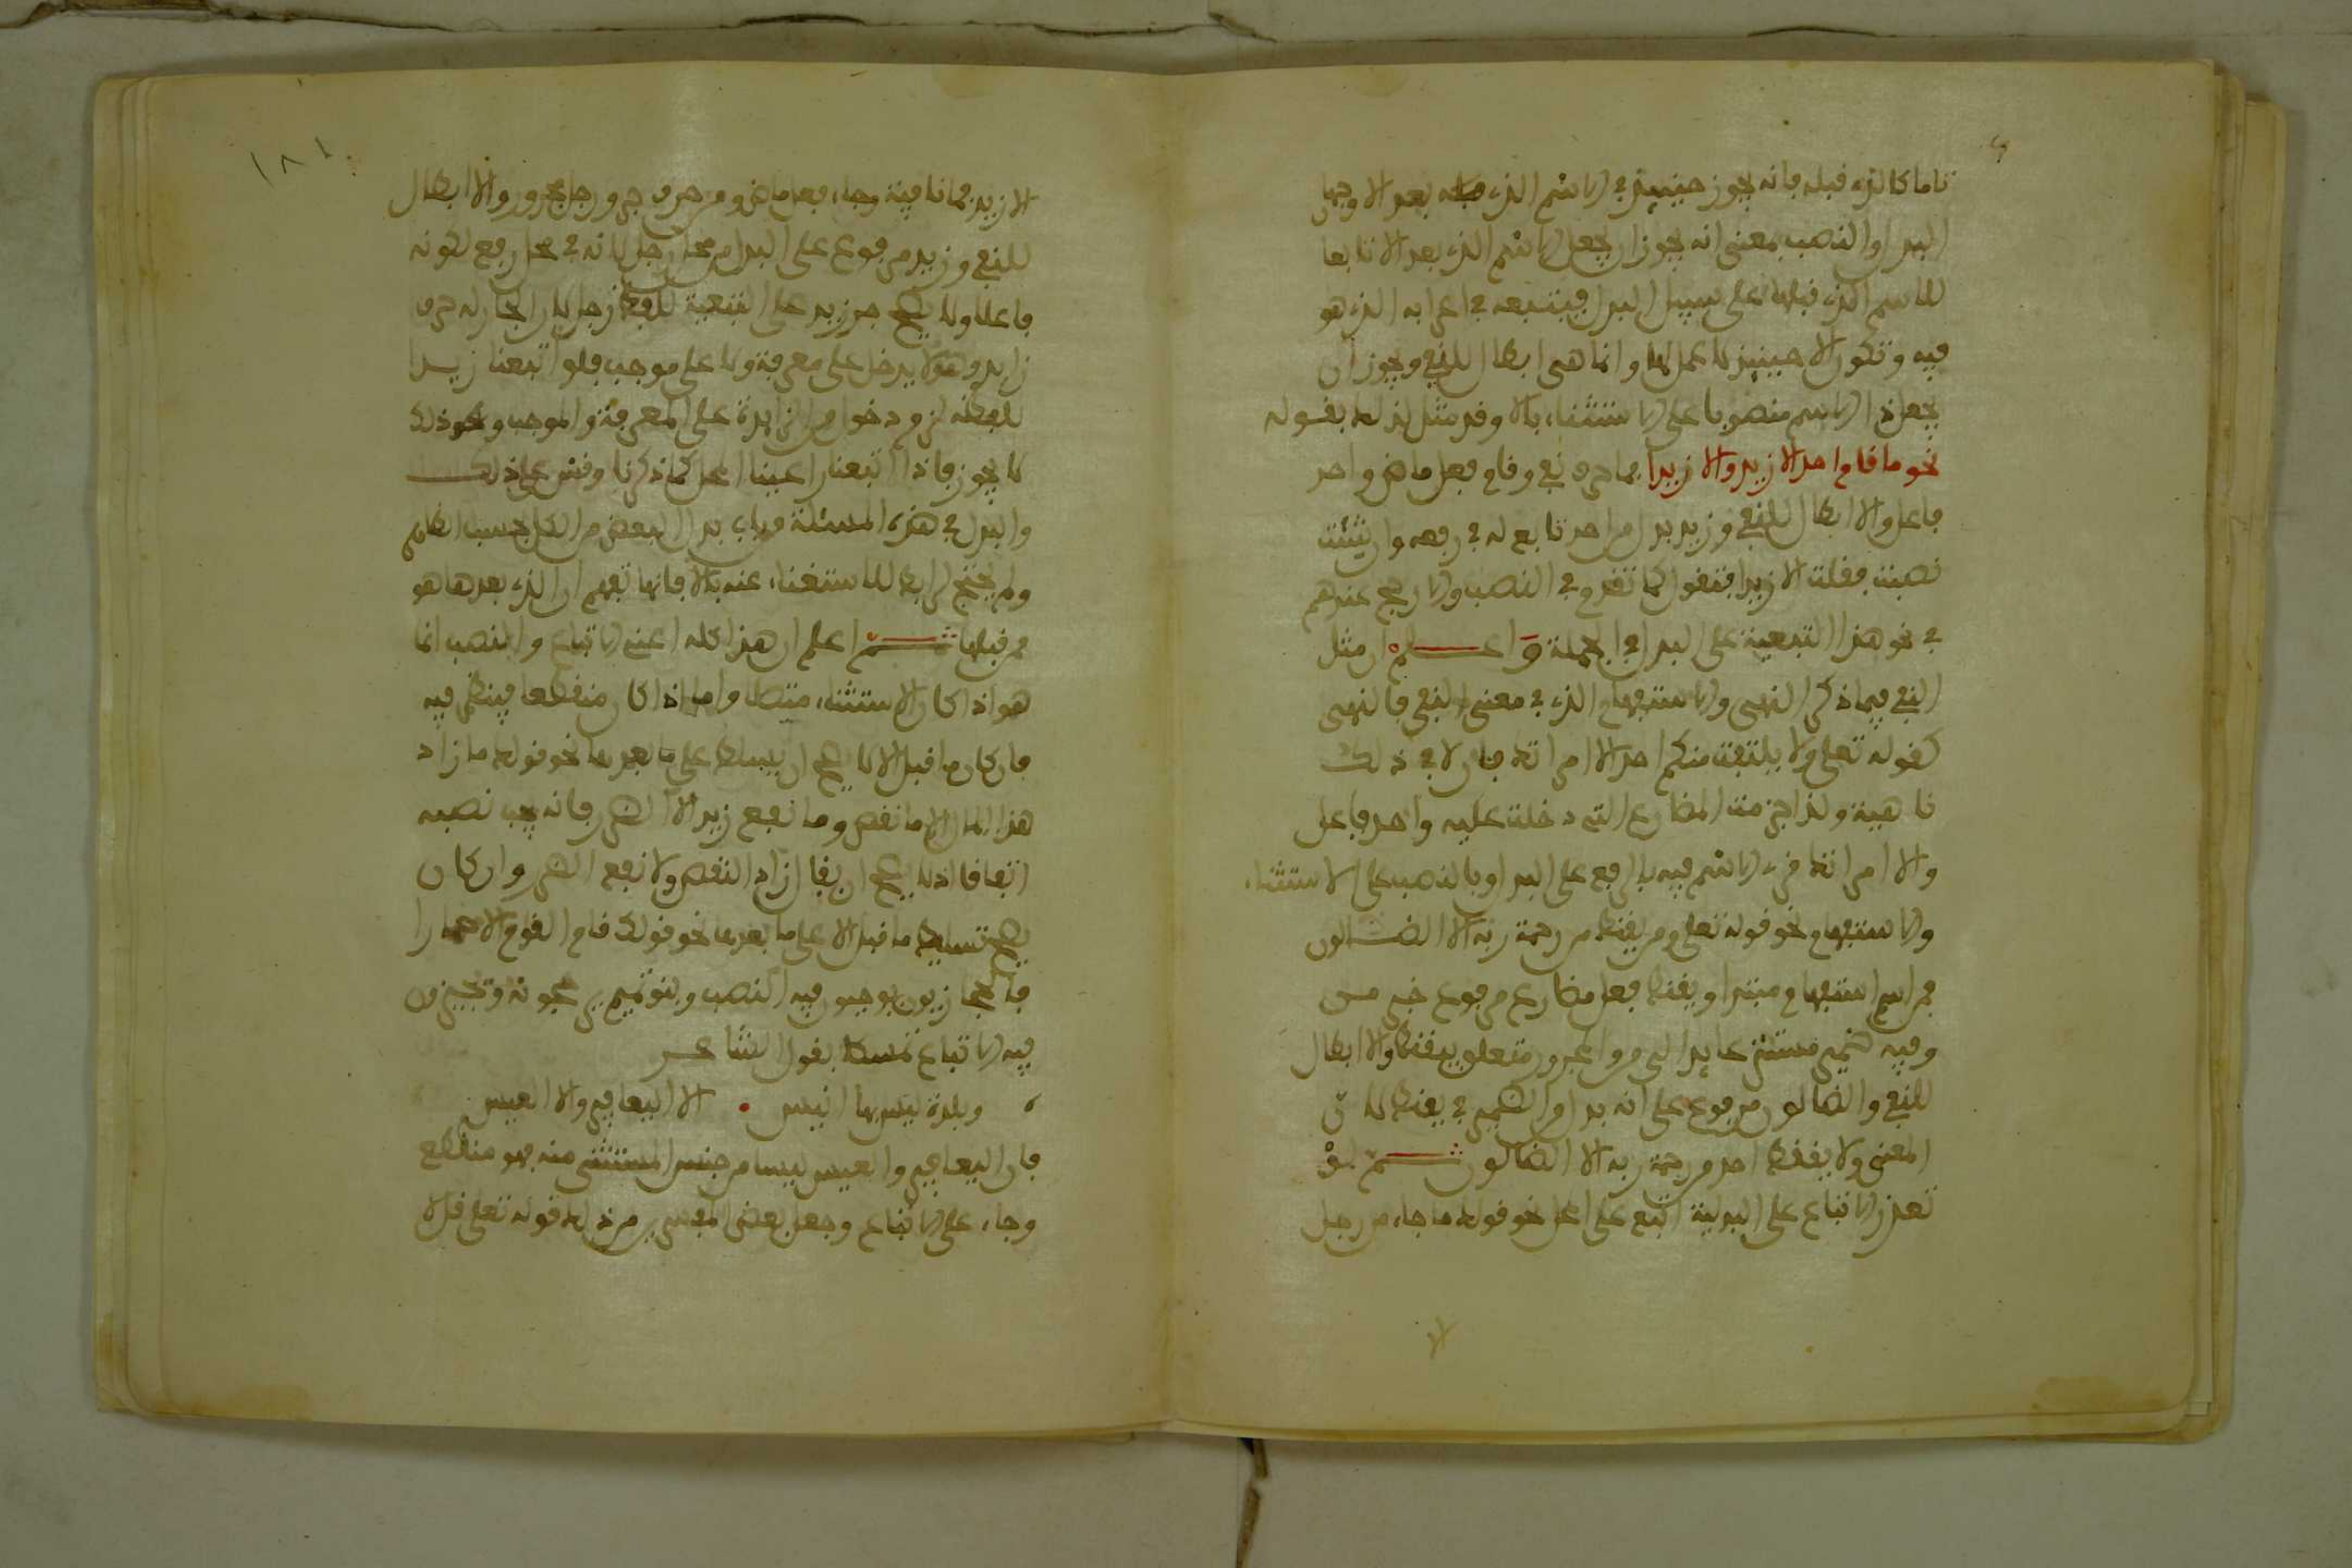 تاما كالذي قبله فانه يجوز حينئذ في الاسم الذي بعد الا وجهان
البدل والنصب بمعنى انه يجوز ان يجعل الاسم الذي بعد الا تابعا
للاسم الذي قبلها على سبيل البدل فيتبعه في اعرابه الذي هو
فيه وتكون الا حينئذ لا عمل لها وانما هي ابطال للنفي ويجوز ان
يجعل ذا الاسم منصوبا على الاستثناء بالا وقد مثل لذلك بقوله
نحو ما قام احد الا زيد والا زيدا فما حرف نفي وقام فعل ماض واحد
فاعل والا ابطال للنفي وزيد بدل من احد تابع له في رفعه وان شئت
نصبت فقلت الا زيدا فتقول كما تقدم في النصب والارجح عندهم
في نحو هذا التبعية على البدل في الجملة واعلم ان مثل
النفي فيما ذكر النهي والاستفهام الذي في معنى النفي فالنهي
كقوله تعلى ولا يلتفت منكم احد الا امراتك فان لا في ذلك
ناهية ولذا جزمت المضارع التي دخلت عليه واحد فاعل
والا امراتك قرئ الاسم فيه بالرفع على البدل وبالنصب على الاستثناء
والاستفهام نحو قوله تعلى ومن يقنط من رحمة ربه الا الضالون
فمن اسم استفهام مبتدا ويقنط فعل مضارع مرفوع خبر من
وفيه ضمير مستتر عايد الى من والمجرور متعلق بيقنط والا ابطال
للنفي والضالون مرفوع على انه بدل من الضمير في يقنط لان
المعنى ولا يقنط احد من رحمة ربه الا الضالون ثم لو
تعذر الاتباع على البدلية اتبع على المحل نحو قولك ما جاء من رجل
١٨١
الا زيد فما نافية وجاء فعل ماض ومن حرف جر ورجل مجرور والا ابطال
للنفي وزيد مرفوع على البدل من محل رجل لانه في محل رفع لكونه
فاعلا ولا يصح جر زيد على التبعية للفظ رجل لان الجار له حرف
زايد وهو لا يدخل على معرفة ولا على موجب فلو اتبعنا زيدا
للفظه لزم دخول من الزايدة على المعرفة والموجب ونحو ذلك
لا يجوز فاذا اتبعنا راعينا المحل كما ذكرنا وقس على ذلك
والبدل في هذه المسئلة من باب بدل البعض من الكل حسب الظاهر
ولم يحتج لرابط للاستغناء عنه بالا فانها تفهم ان الذي بعدها هو
من قبلها ثم اعلم ان هذا كله اعني الاتباع والنصب انما
هو اذا كان الاستثناء متصلا واما اذا كان منقطعا فينظر فيه
فان كان ما قبل الا لا يصح ان يسلط على ما بعدها نحو قولك ما زاد
هذا المال الا ما نقص وما نفع زيد الا الضر فانه يجب نصبه
اتفاقا اذ لا يصح ان يقال زاد النقص ولا نفع الضر وان كان
يصح تسليط ما قبل الا على ما بعدها نحو قولك قام القوم الا حمارا
فالحجازيون يوجبون فيه النصب وبنو تميم يرجحونه ويجيزون
فيه الاتباع تمسكا بقول الشاعر
وبلدة ليس بها انيس . الا اليعافير والا العيس
فان اليعافير والعيس ليسا من جنس المستثنى منه فهو منقطع
وجاء على الاتباع وجعل بعض المفسرين من ذلك قوله تعلى قل لا